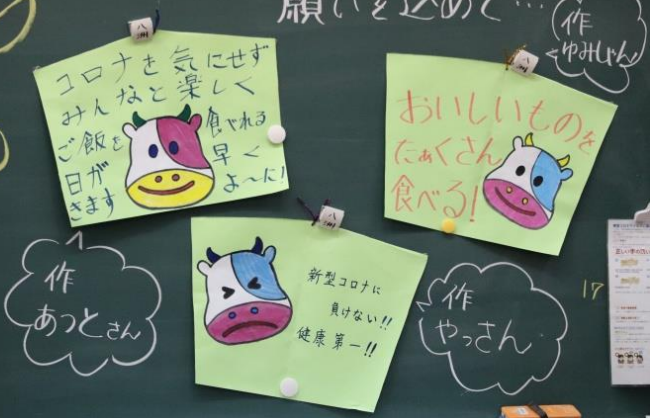 願いを込めて…
作
ゆみしゃん
八洲
コロナを気にせず
みんなと楽しく
ご飯を食べれる
日が早く
きますよ〜に!
八洲
おいしいものを
たぁくさん
食べる!
八洲
新型コロナに
負けない!!
健康第一!!
作
あっとさん
作
やっさん
17